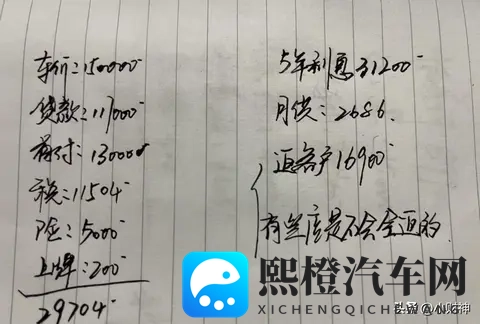 车价:150000
贷款:117000
首付:13000
税:11504
险:5000
上牌:200
29704
5年利息31200
月供:2686.
返客户16900
有些店是不会全返的.
熙橙汽车网
XICHENGQICHEWANG
头条@小财神